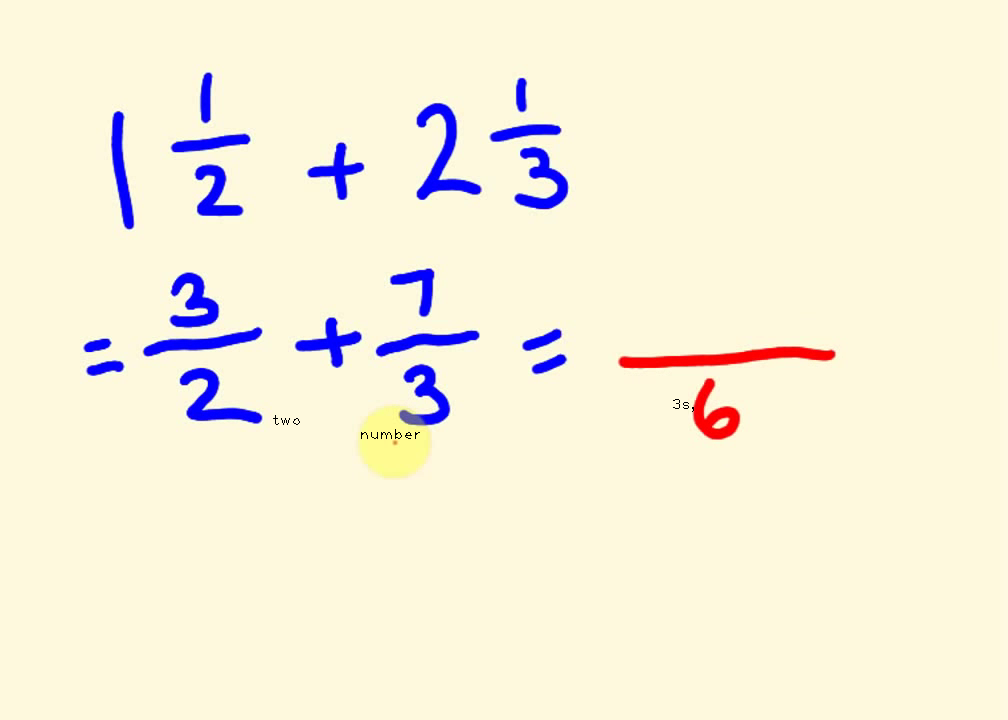 1 1/2 + 2 1/3
= 3/2 + 7/3 = /6
two number 3s,